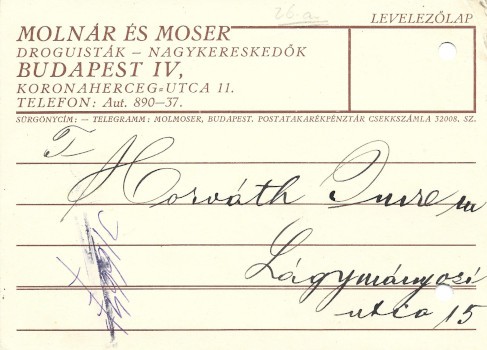 26.a
LEVELEZŐLAP
MOLNÁR ÉS MOSER
DROGUISTÁK — NAGYKERESKEDŐK
BUDAPEST IV,
KORONAHERCEG=UTCA 11.
TELEFON: Aut. 890—37.
SÜRGÖNYCÍM: — TELEGRAMM: MOLMOSER, BUDAPEST. POSTATAKARÉKPÉNZTÁR CSEKKSZÁMLA 32008. SZ.
T
Horváth Imre
Lágymányosi
utca 15